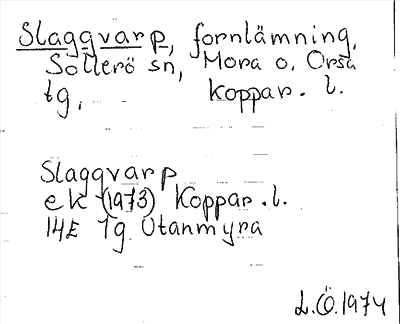 Slaggvarp, fornlämning,
Sollerö sn, Mora o. Orsa
tg, Koppar. l.
Slaggvarp
ek (1973) Koppar. l.
14E 1g Utanmyra
L.Ö. 1974